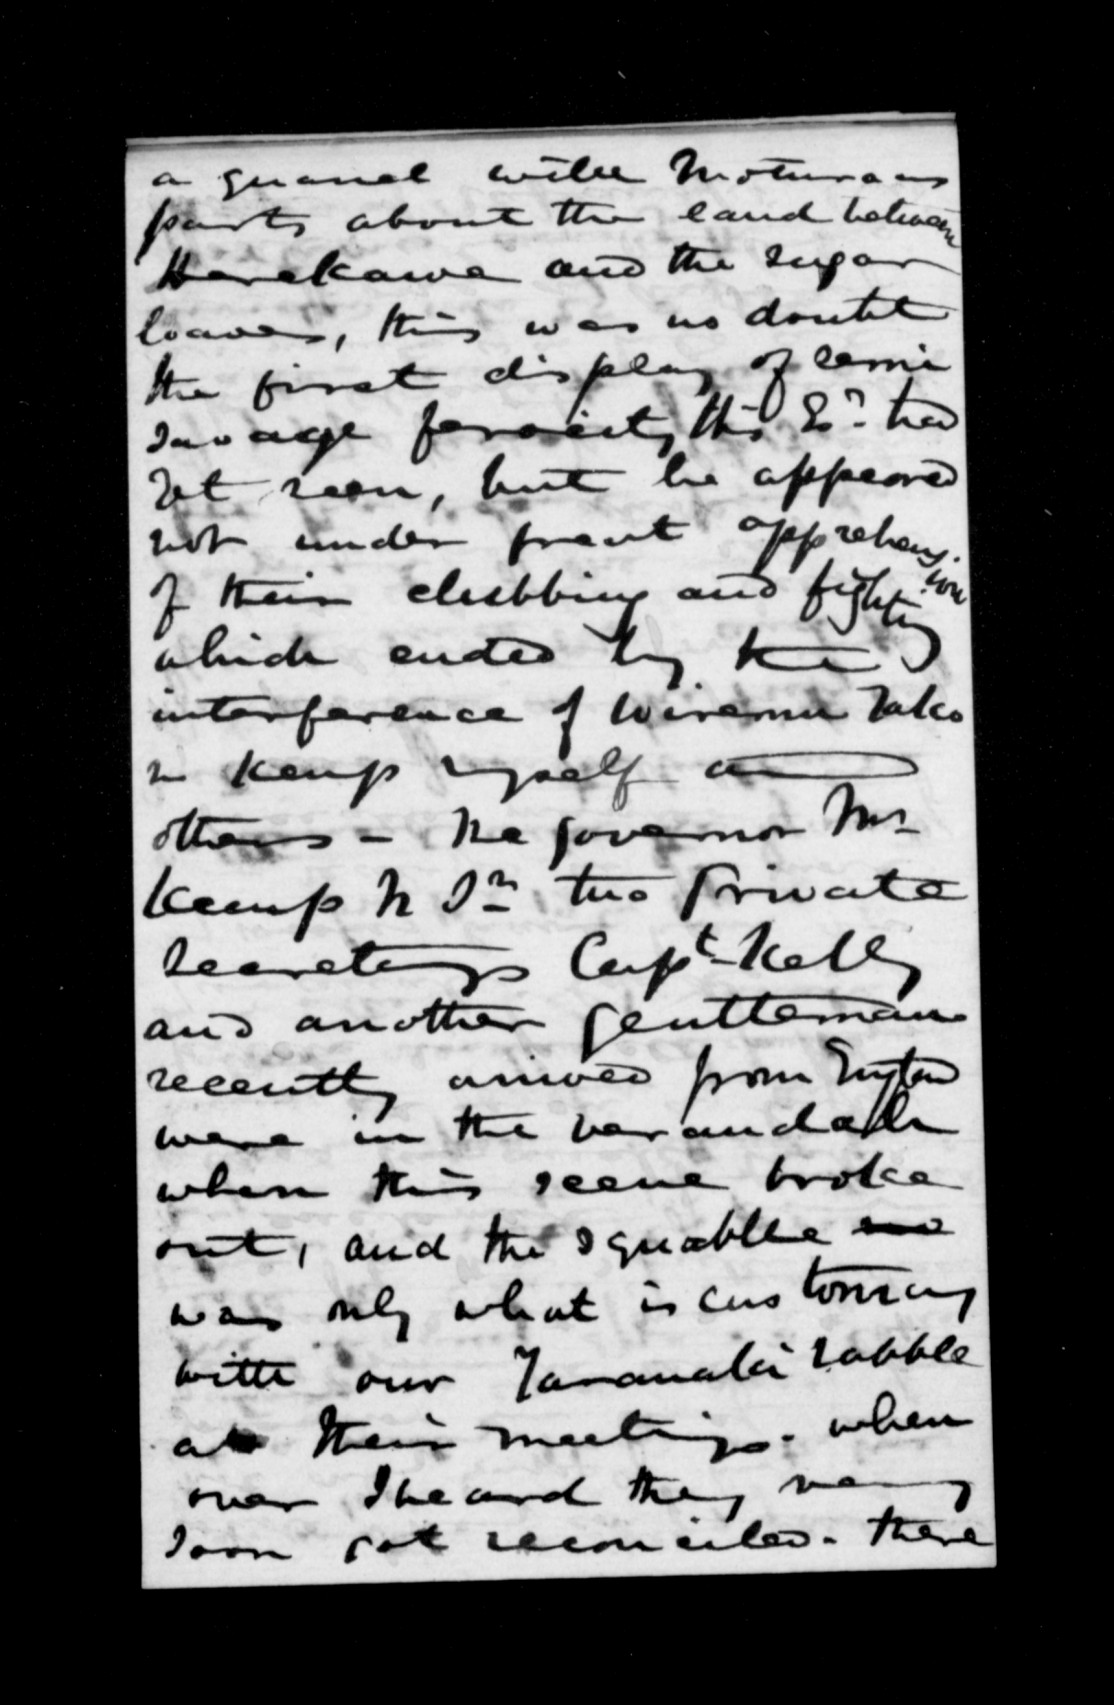 a quarrel with Moturoas
parts about the land between
Herekawe and the Sugar
loaves, this was no doubt
the first display of semi
savage ferocity this Er. had
yet seen, but he appeared
not under great apprehension
of their clubbing and fighting
which ended by the
interference of Wiremu Tako
Mr Kemp myself and
others - The Governor Mr
Kemp N Sr two Private
Secretarys Capt. Kelly
and another gentleman
recently arrived from England
were in the verandah
when this scene broke
out, and the squabble
was only what is customary
with our Taranaki rabble
at their meetings. when
over I heard they very
soon got reconciled. there